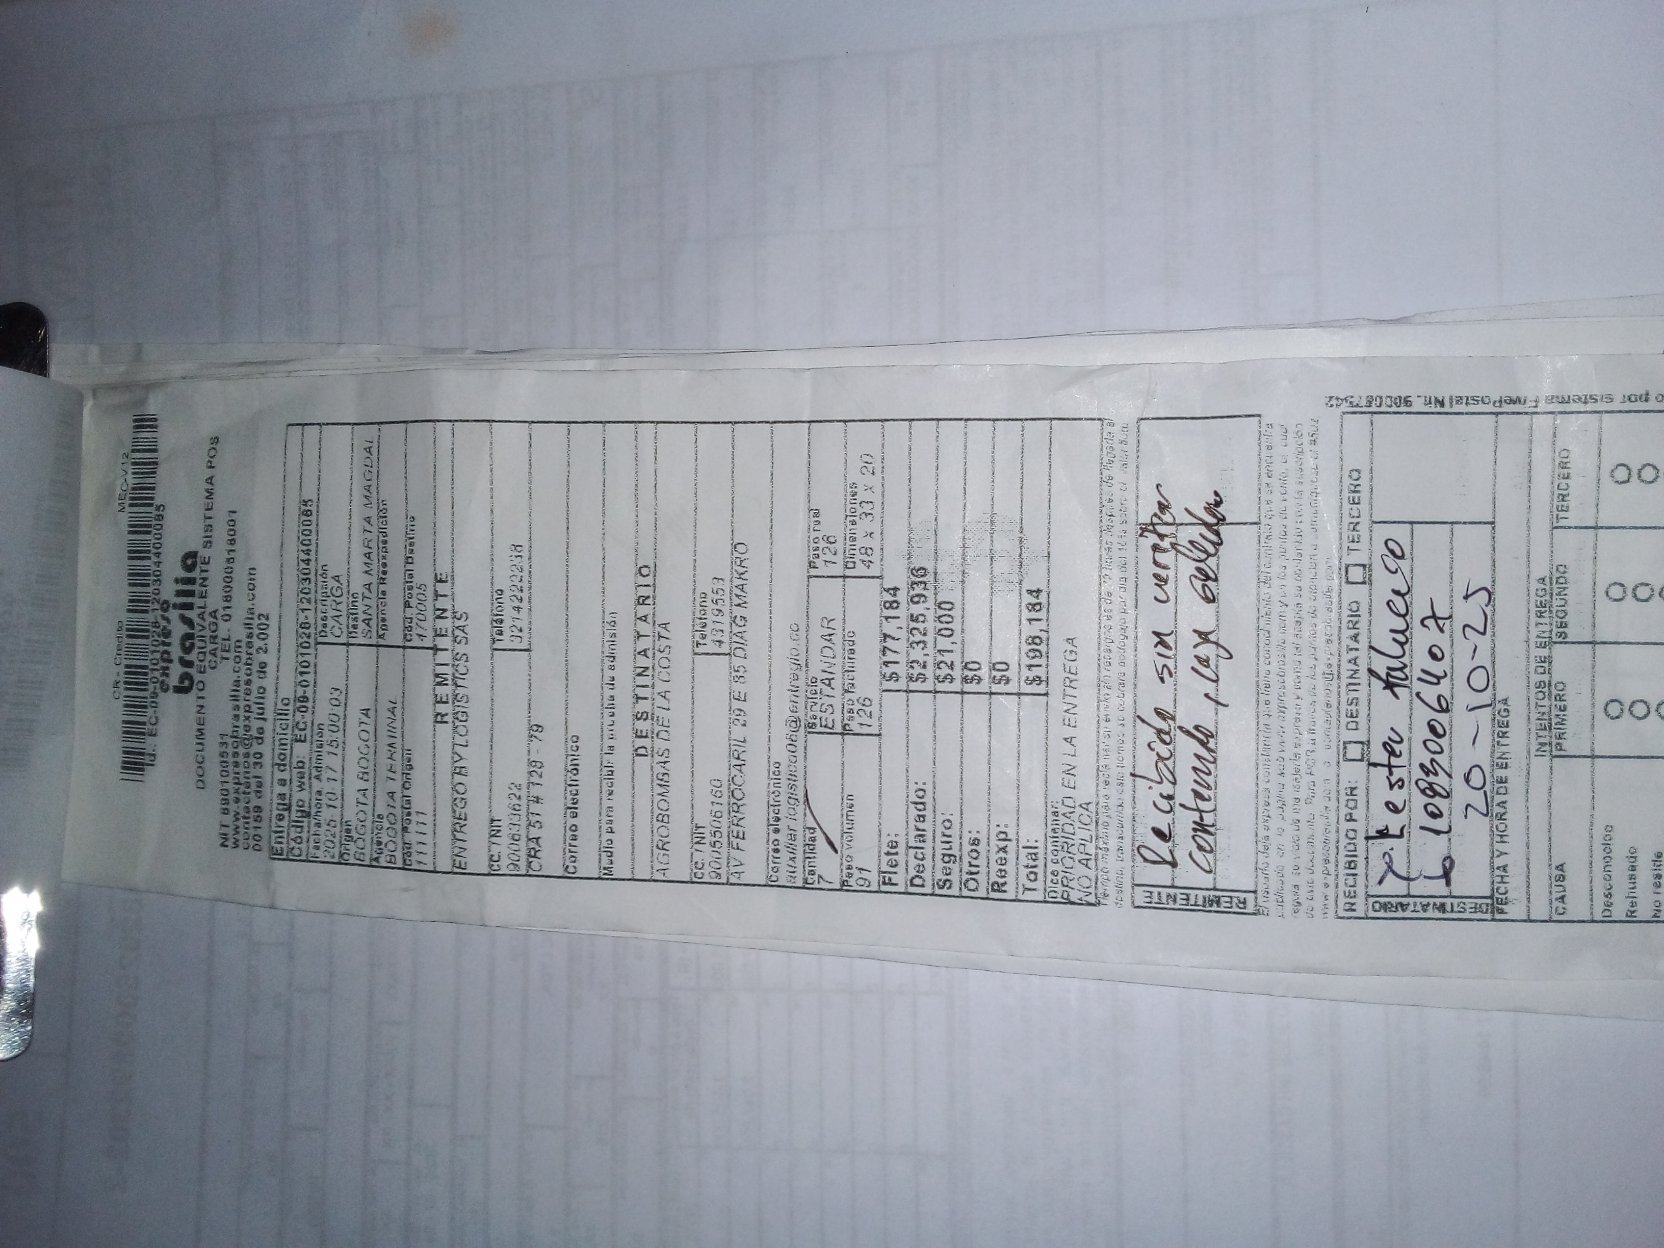 CR - Credito MEC-V12
Id.: EC-09-0101028-1203044000­85
expreso
brasilia
DOCUMENTO EQUIVALENTE SISTEMA POS
CARGA
NIT 890100531 TEL. 018000518001
www.expresobrasilia.com
contactenos@expresobrasilia.com
00159 del 30 de julio de 2.002
Entrega a domicilio
Código web: EC-09-0101028-120304400085
Fecha/hora Admisión Descripción
2025 10 17 15:00:03 CARGA
Origen Destino
BOGOTA BOGOTA SANTA MARTA MAGDAL
Agencia Agencia Reexpedición
BOGOTA TERMINAL
Cód Postal Origen Cód Postal Destino
111111 470005
REMITENTE
ENTREGO BY LOGISTICS SAS
CC. / NIT Teléfono
900633622 3214222238
CRA 51 # 128 - 79
Correo electrónico
Medio para recibir la prueba de admisión
DESTINATARIO
AGROBOMBAS DE LA COSTA
CC. / NIT Teléfono
9005506160 4319559
AV FERROCARIL 29 E 85 DIAG MAKRO
Correo electrónico
auxiliar.logistico06@entregio.co
Cantidad Servicio Peso real
7 ESTANDAR 126
Peso volumen Peso facturado Dimensiones
91 126 48 x 33 x 20
Flete: $177,184
Declarado: $2,325,936
Seguro: $21,000
Otros: $0
Reexp: $0
Total: $198,184
Dice contener:
PRIORIDAD EN LA ENTREGA
NO APLICA
REMITENTE
Recibido sin verificar
contenido
RECIBIDO POR: DESTINATARIO TERCERO
DESTINATARIO
20-10-25
FECHA Y HORA DE ENTREGA
INTENTOS DE ENTREGA
CAUSA PRIMERO SEGUNDO TERCERO
Desconocido
Rehusado
No reside
o por sistema FivePostal Nit. 900087542